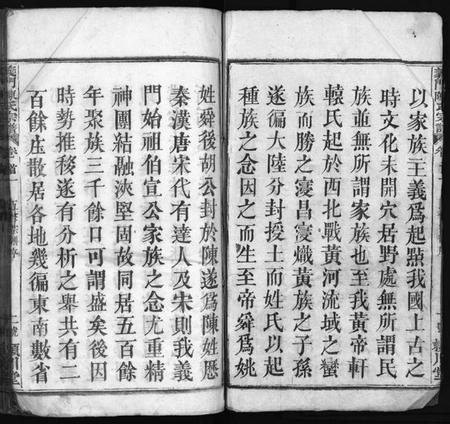 以家族主義爲起點我國上古之
時文化未開穴居野處無所謂民
族並無所謂家族也至我黃帝軒
轅氏起於西北戰黃河流域之蠻
族而勝之寖昌寖熾黃族之子孫
遂徧大陸分封授土而姓氏以起
種族之念因之而生至帝舜爲姚
姓舜後胡公封於陳遂爲陳姓歷
秦漢唐宋代有達人及宋則我義
門始祖伯宣公家族之念尤重精
神團結融浹堅固故同居五百餘
年聚族三千餘口可謂盛矣後因
時勢推移遂有分析之舉共有二
百餘庄散居各地幾徧東南數省
義門陳氏宗譜 卷首 二號 潁川堂